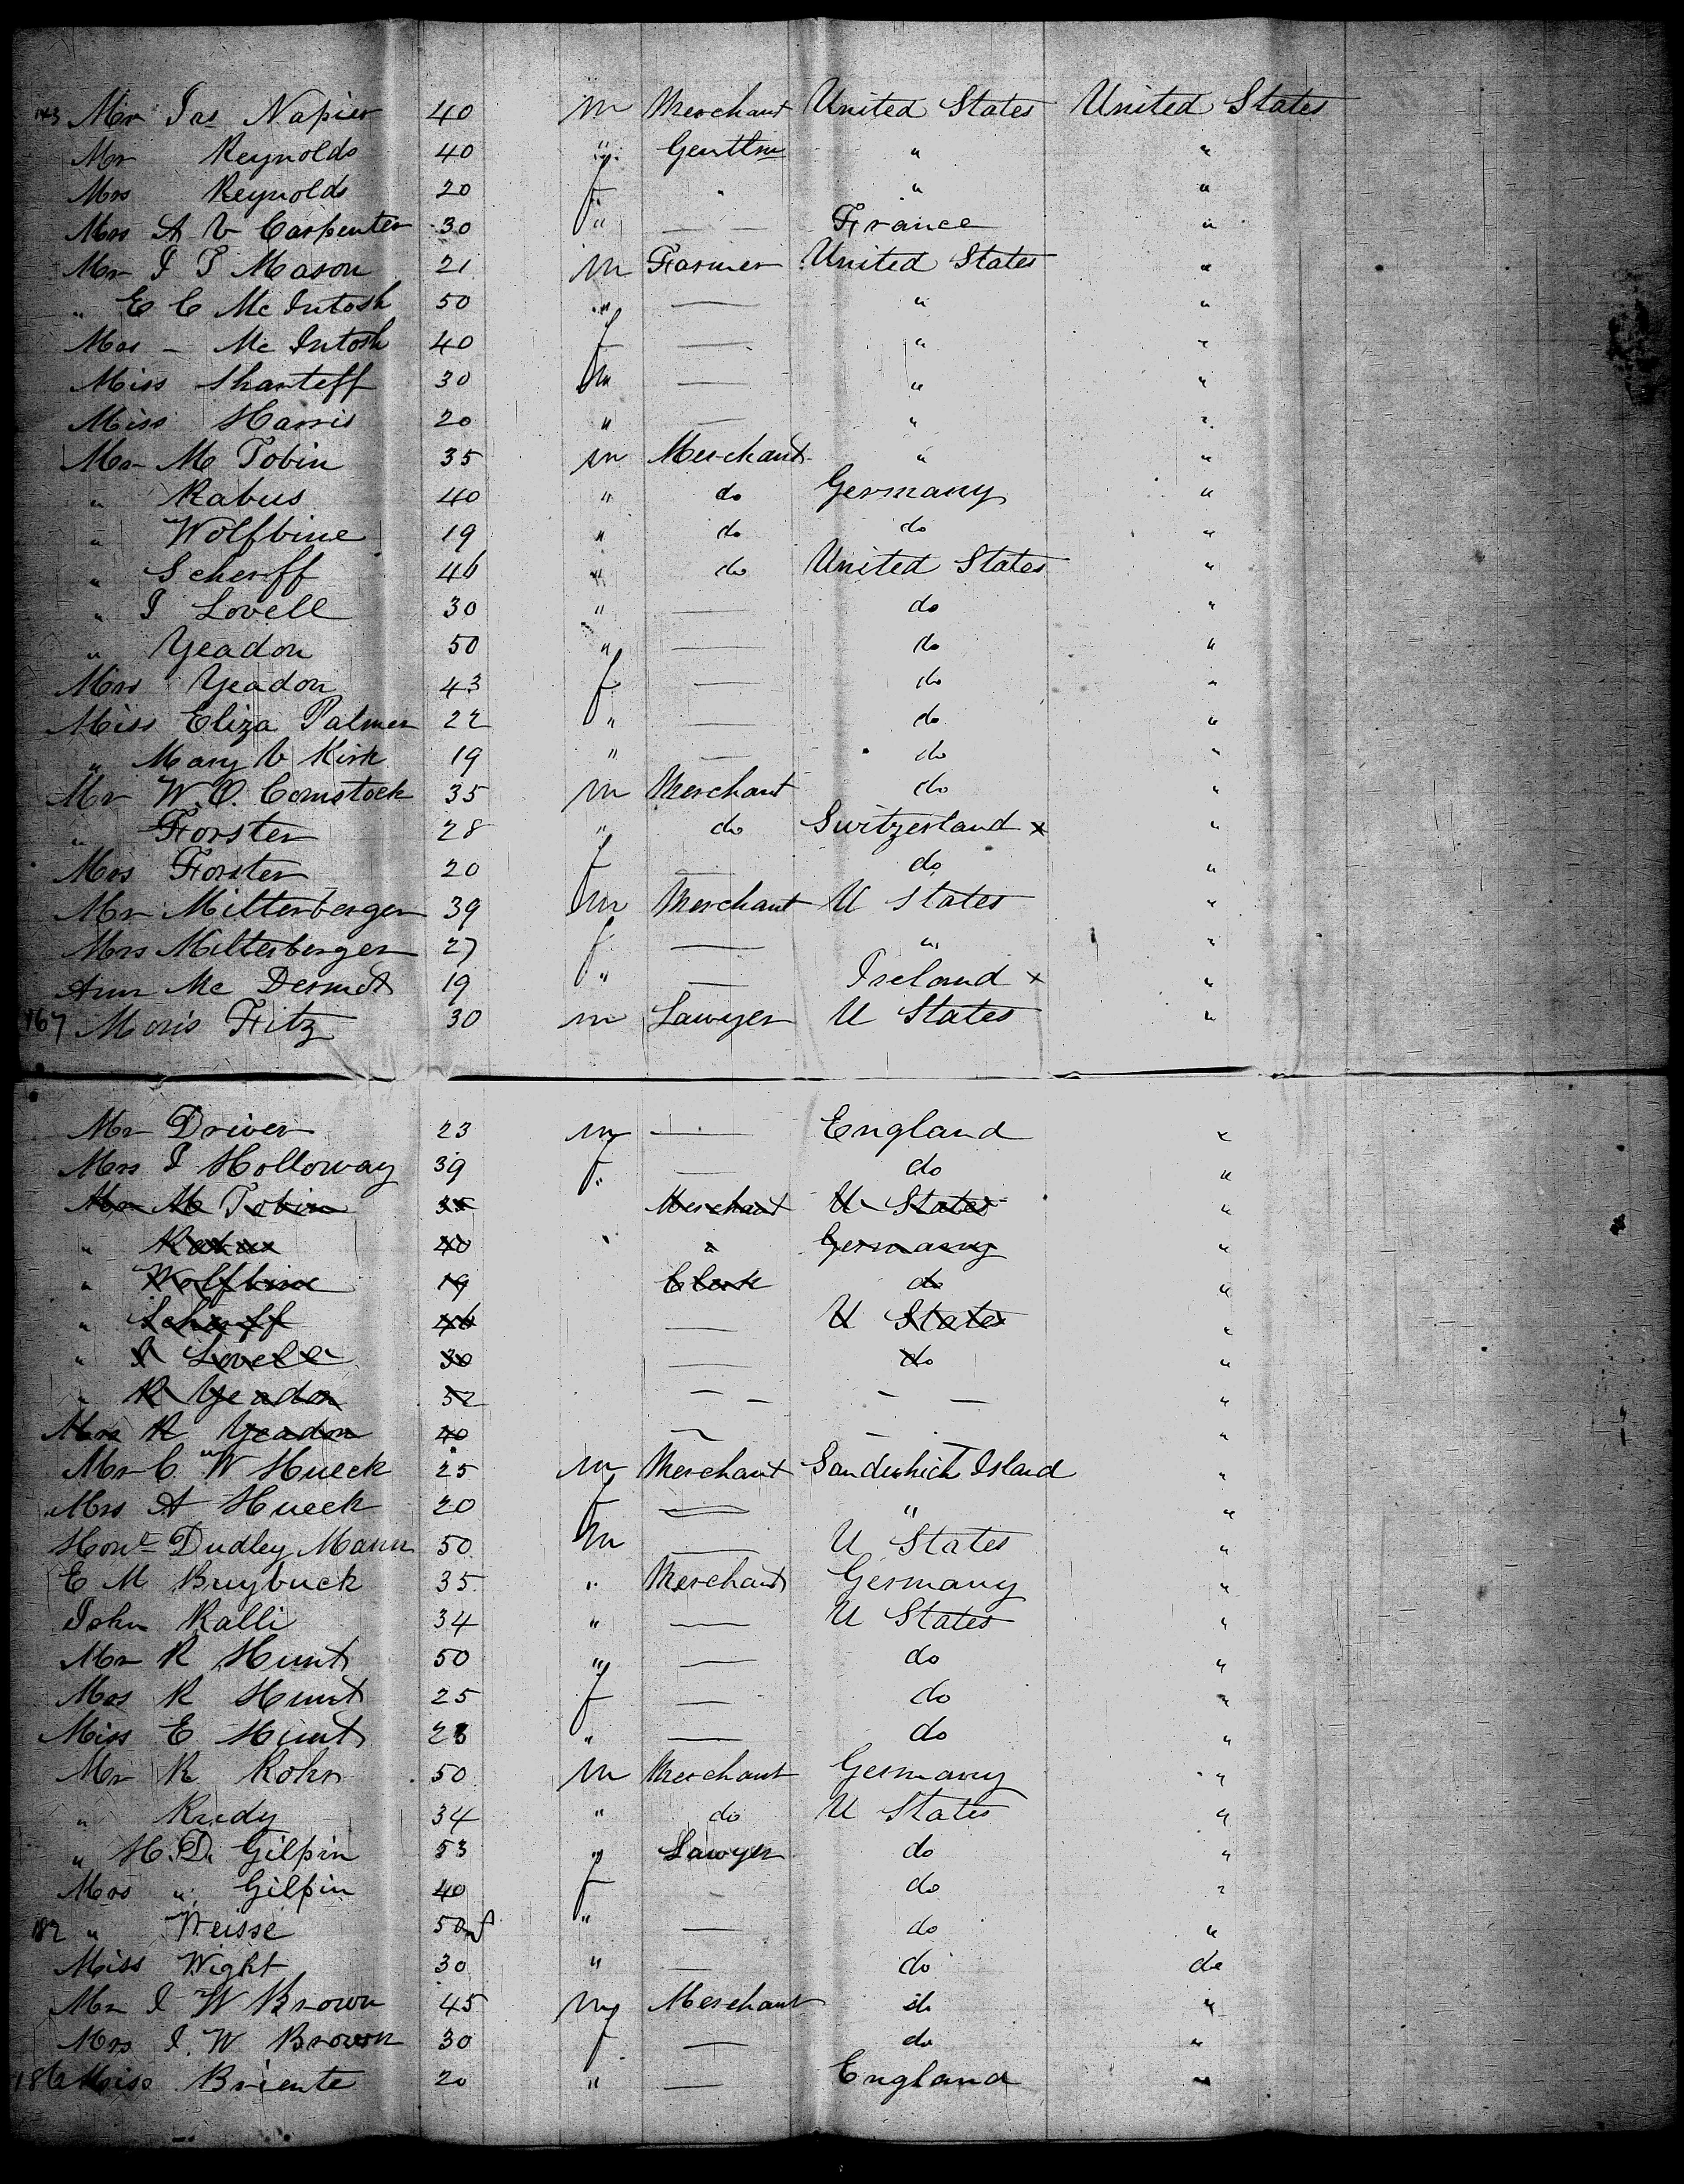 143 Mr Jas Napier 40 m Merchant United States United States
Mr Reynolds 40 " Gentlm " "
Mrs Reynolds 20 f " " "
Mrs A V Carpenter 30 " — — France "
Mr J T Mason 21 m Farmer United States "
" E C Mc Intosh 50 " — " "
Mrs — Mc Intosh 40 f — " "
Miss Shanteff 30 " — " "
Miss Harris 20 " — " "
Mr M Tobin 35 m Merchant " "
" Rabus 40 " do Germany "
" Wolfbine 19 " do do "
" Scherff 46 " do United States "
" J Lovell 30 " — do "
" Yeadon 50 " — do "
Mrs Yeadon 43 f — do "
Miss Eliza Palmer 22 " — do "
" Mary V Kirk 19 " — do "
Mr W. O. Comstock 35 m Merchant do "
" Forster 28 " do Switzerland x "
Mrs Forster 20 f — do "
Mr Miltenberger 39 m Merchant U States "
Mrs Miltenberger 27 f — " "
Ann Mc Dermot 19 " — Ireland x "
167 Moris Fitz 30 m Lawyer U States "
Mr Driver 23 m — England "
Mrs J Holloway 39 f — do "
Mr M Tobin 35 Merchant U States "
" Rabus 40 " Germany "
" Wolfbine 19 Clerk do "
" Scherff 46 — U States "
" J Lovell 30 — do "
" R Yeadon 52 — — — — "
Mrs R Yeadon 40 — — "
Mr C. W Hueck 25 m Merchant Sandwhich Island "
Mrs A Hueck 20 f — " "
Honl Dudley Mann 50 m — U States "
E M Bruybuck 35 " Merchant Germany "
John Ralli 34 " — U States "
Mr R Hunt 50 " — do "
Mrs R Hunt 25 f — do "
Miss E Hunt 23 " — do "
Mr R Kohn 50 m Merchant Germany "
" Rudy 34 " do U States "
" H. D. Gilpin 53 " Lawyer do "
Mrs " Gilpin 40 f do "
182 " Weisse 50 f " — do "
Miss Wight 30 " — do do
Mr J W Brown 45 m Merchant do "
Mrs J. W Brown 30 f — do "
186 Miss Briente 20 " — England "